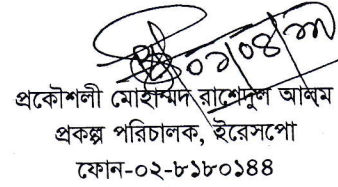 ০১/০৪/১৯
প্রকৌশলী মোহাম্মদ রাশেদুল আলম
প্রকল্প পরিচালক, ইরেসপো
ফোন-০২-৮১৮০১৪৪